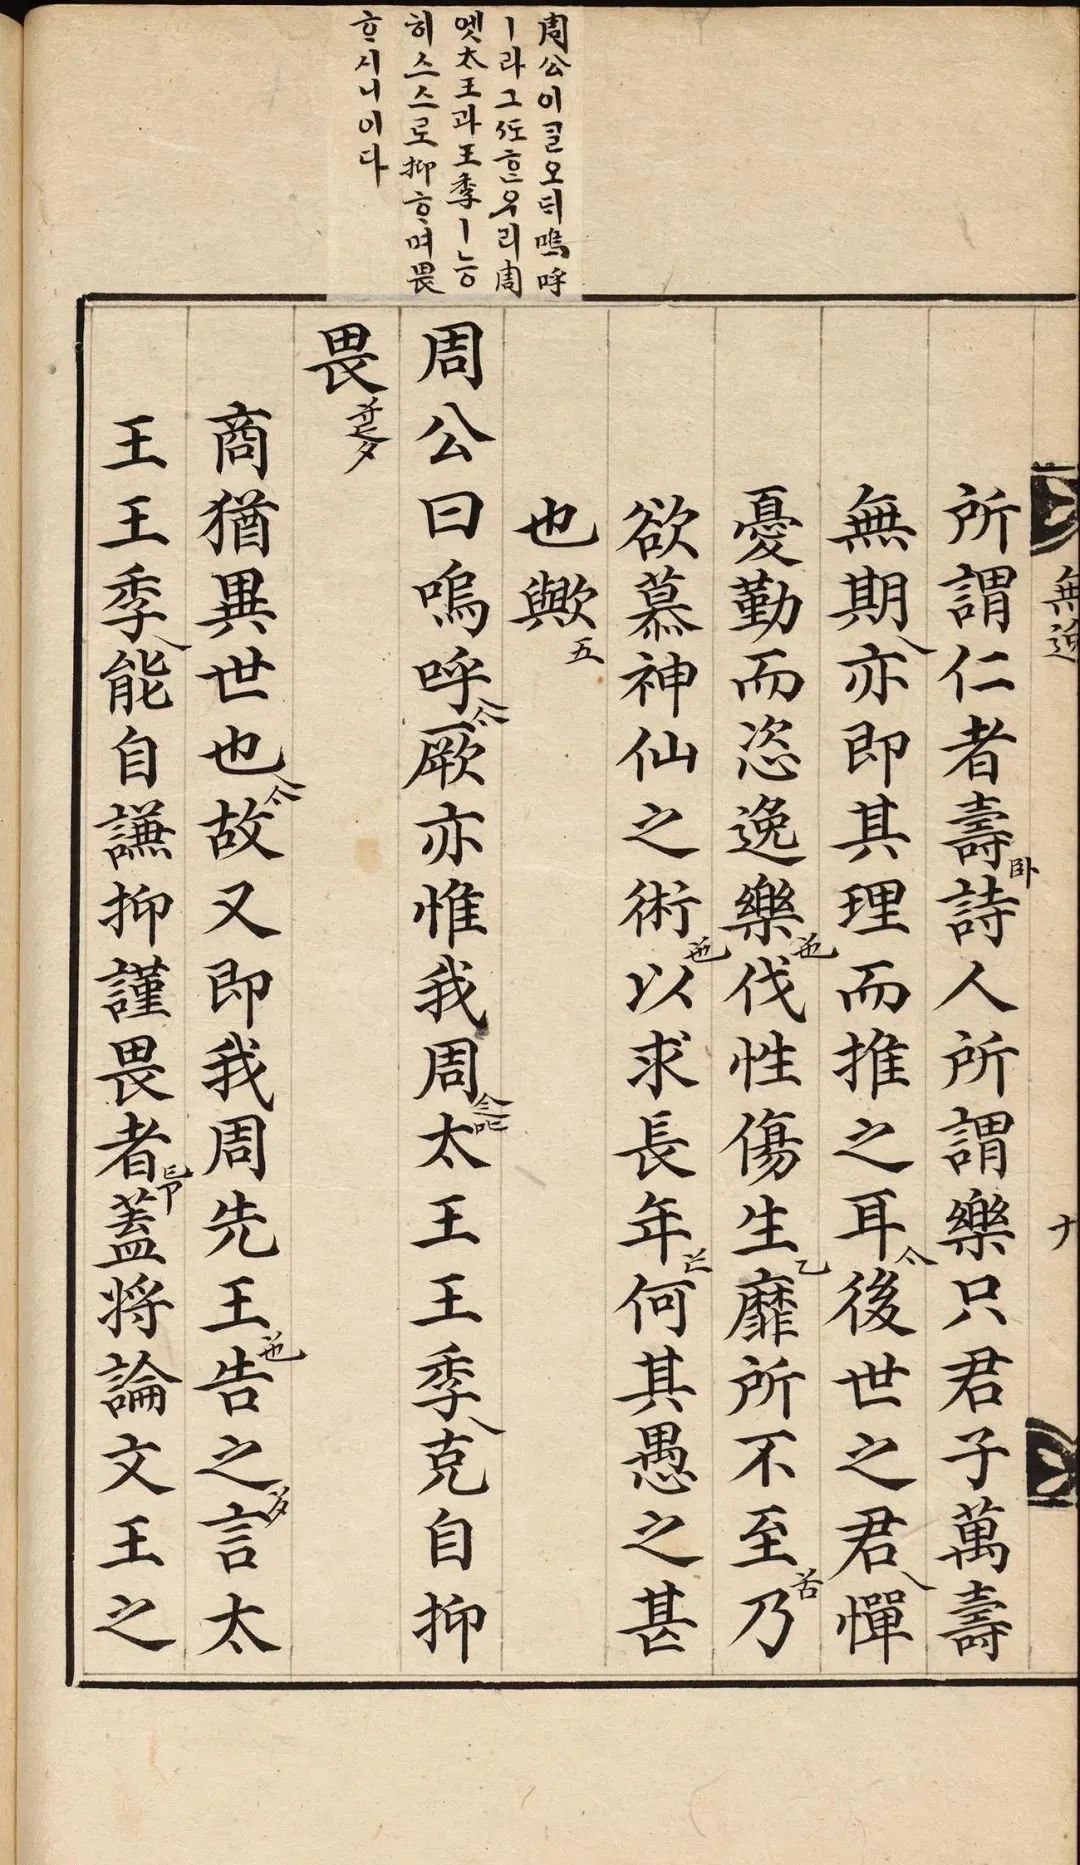 周公이ᄀᆞᆯ오ᄃᆡ嗚呼
ㅣ라그ᄯᅩᄒᆞᆫ우리周
엣太王과王季ㅣ능
히스스로抑ᄒᆞ며畏
ᄒᆞ시니이다
無逸
所謂仁者壽卧詩人所謂樂只君子萬壽
無期亦即其理而推之耳後世之君憚
憂勤而恣逸樂伐性傷生乙靡所不至乃
欲慕神仙之術以求長年何其愚之甚
也歟五
周公曰嗚呼厥亦惟我周太王王季克自抑
畏
商猶異世也故又即我周先王告之言太
王王季能自謙抑謹畏者蓋将論文王之